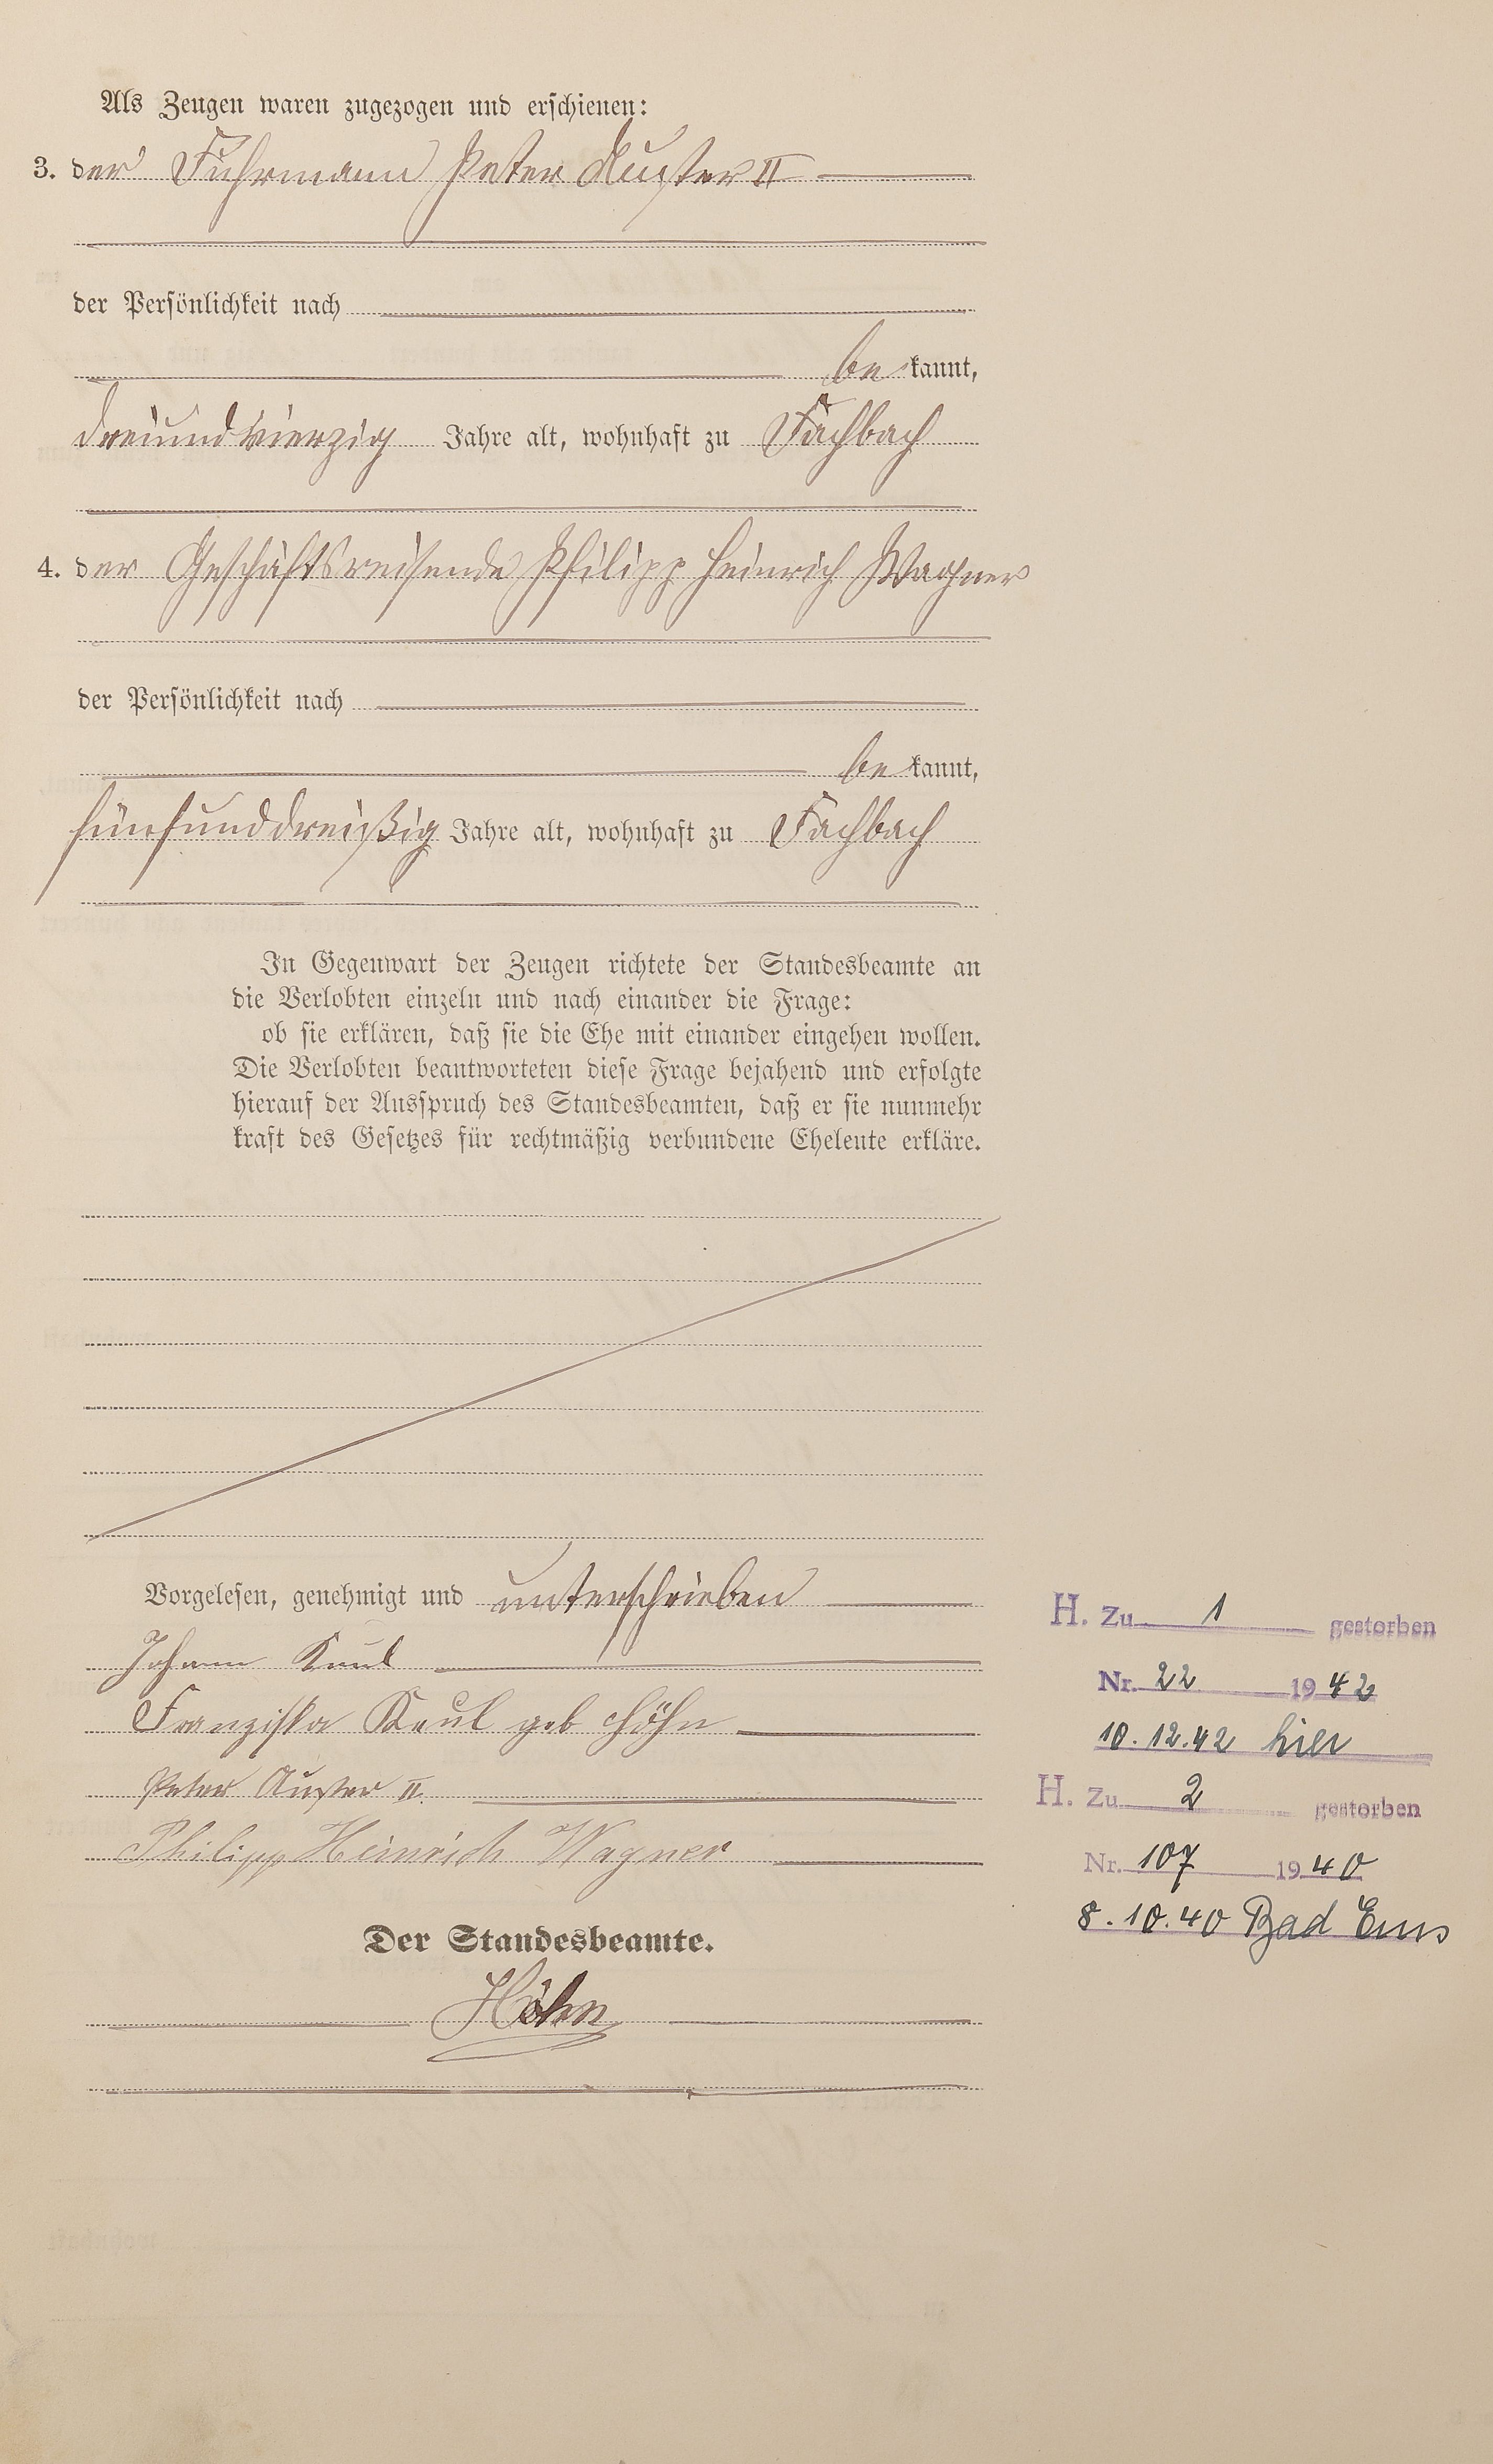 Als Zeugen waren zugezogen und erschienen:
3. der Fuhrmann Peter Auster II
der Persönlichkeit nach
bekannt,
dreiundvierzig Jahre alt, wohnhaft zu Fachbach
4. der Geschäftsreisende Philipp Heinrich Wagner
der Persönlichkeit nach
bekannt,
fünfunddreißig Jahre alt, wohnhaft zu Fachbach
In Gegenwart der Zeugen richtete der Standesbeamte an
die Verlobten einzeln und nach einander die Frage:
ob sie erklären, daß sie die Ehe mit einander eingehen wollen.
Die Verlobten beantworteten diese Frage bejahend und erfolgte
hierauf der Ausspruch des Standesbeamten, daß er sie nunmehr
kraft des Gesetzes für rechtmäßig verbundene Eheleute erkläre.
Vorgelesen, genehmigt und unterschrieben
Johann Kaul
Franziska Kaul geb Höhn
Peter Auster II.
Philipp Heinrich Wagner
Der Standesbeamte.
Höhn
H. Zu 1 gestorben
Nr. 22 1942
10.12.42 hier
H. Zu 2 gestorben
Nr. 107 1940
8.10.40 Bad Ems